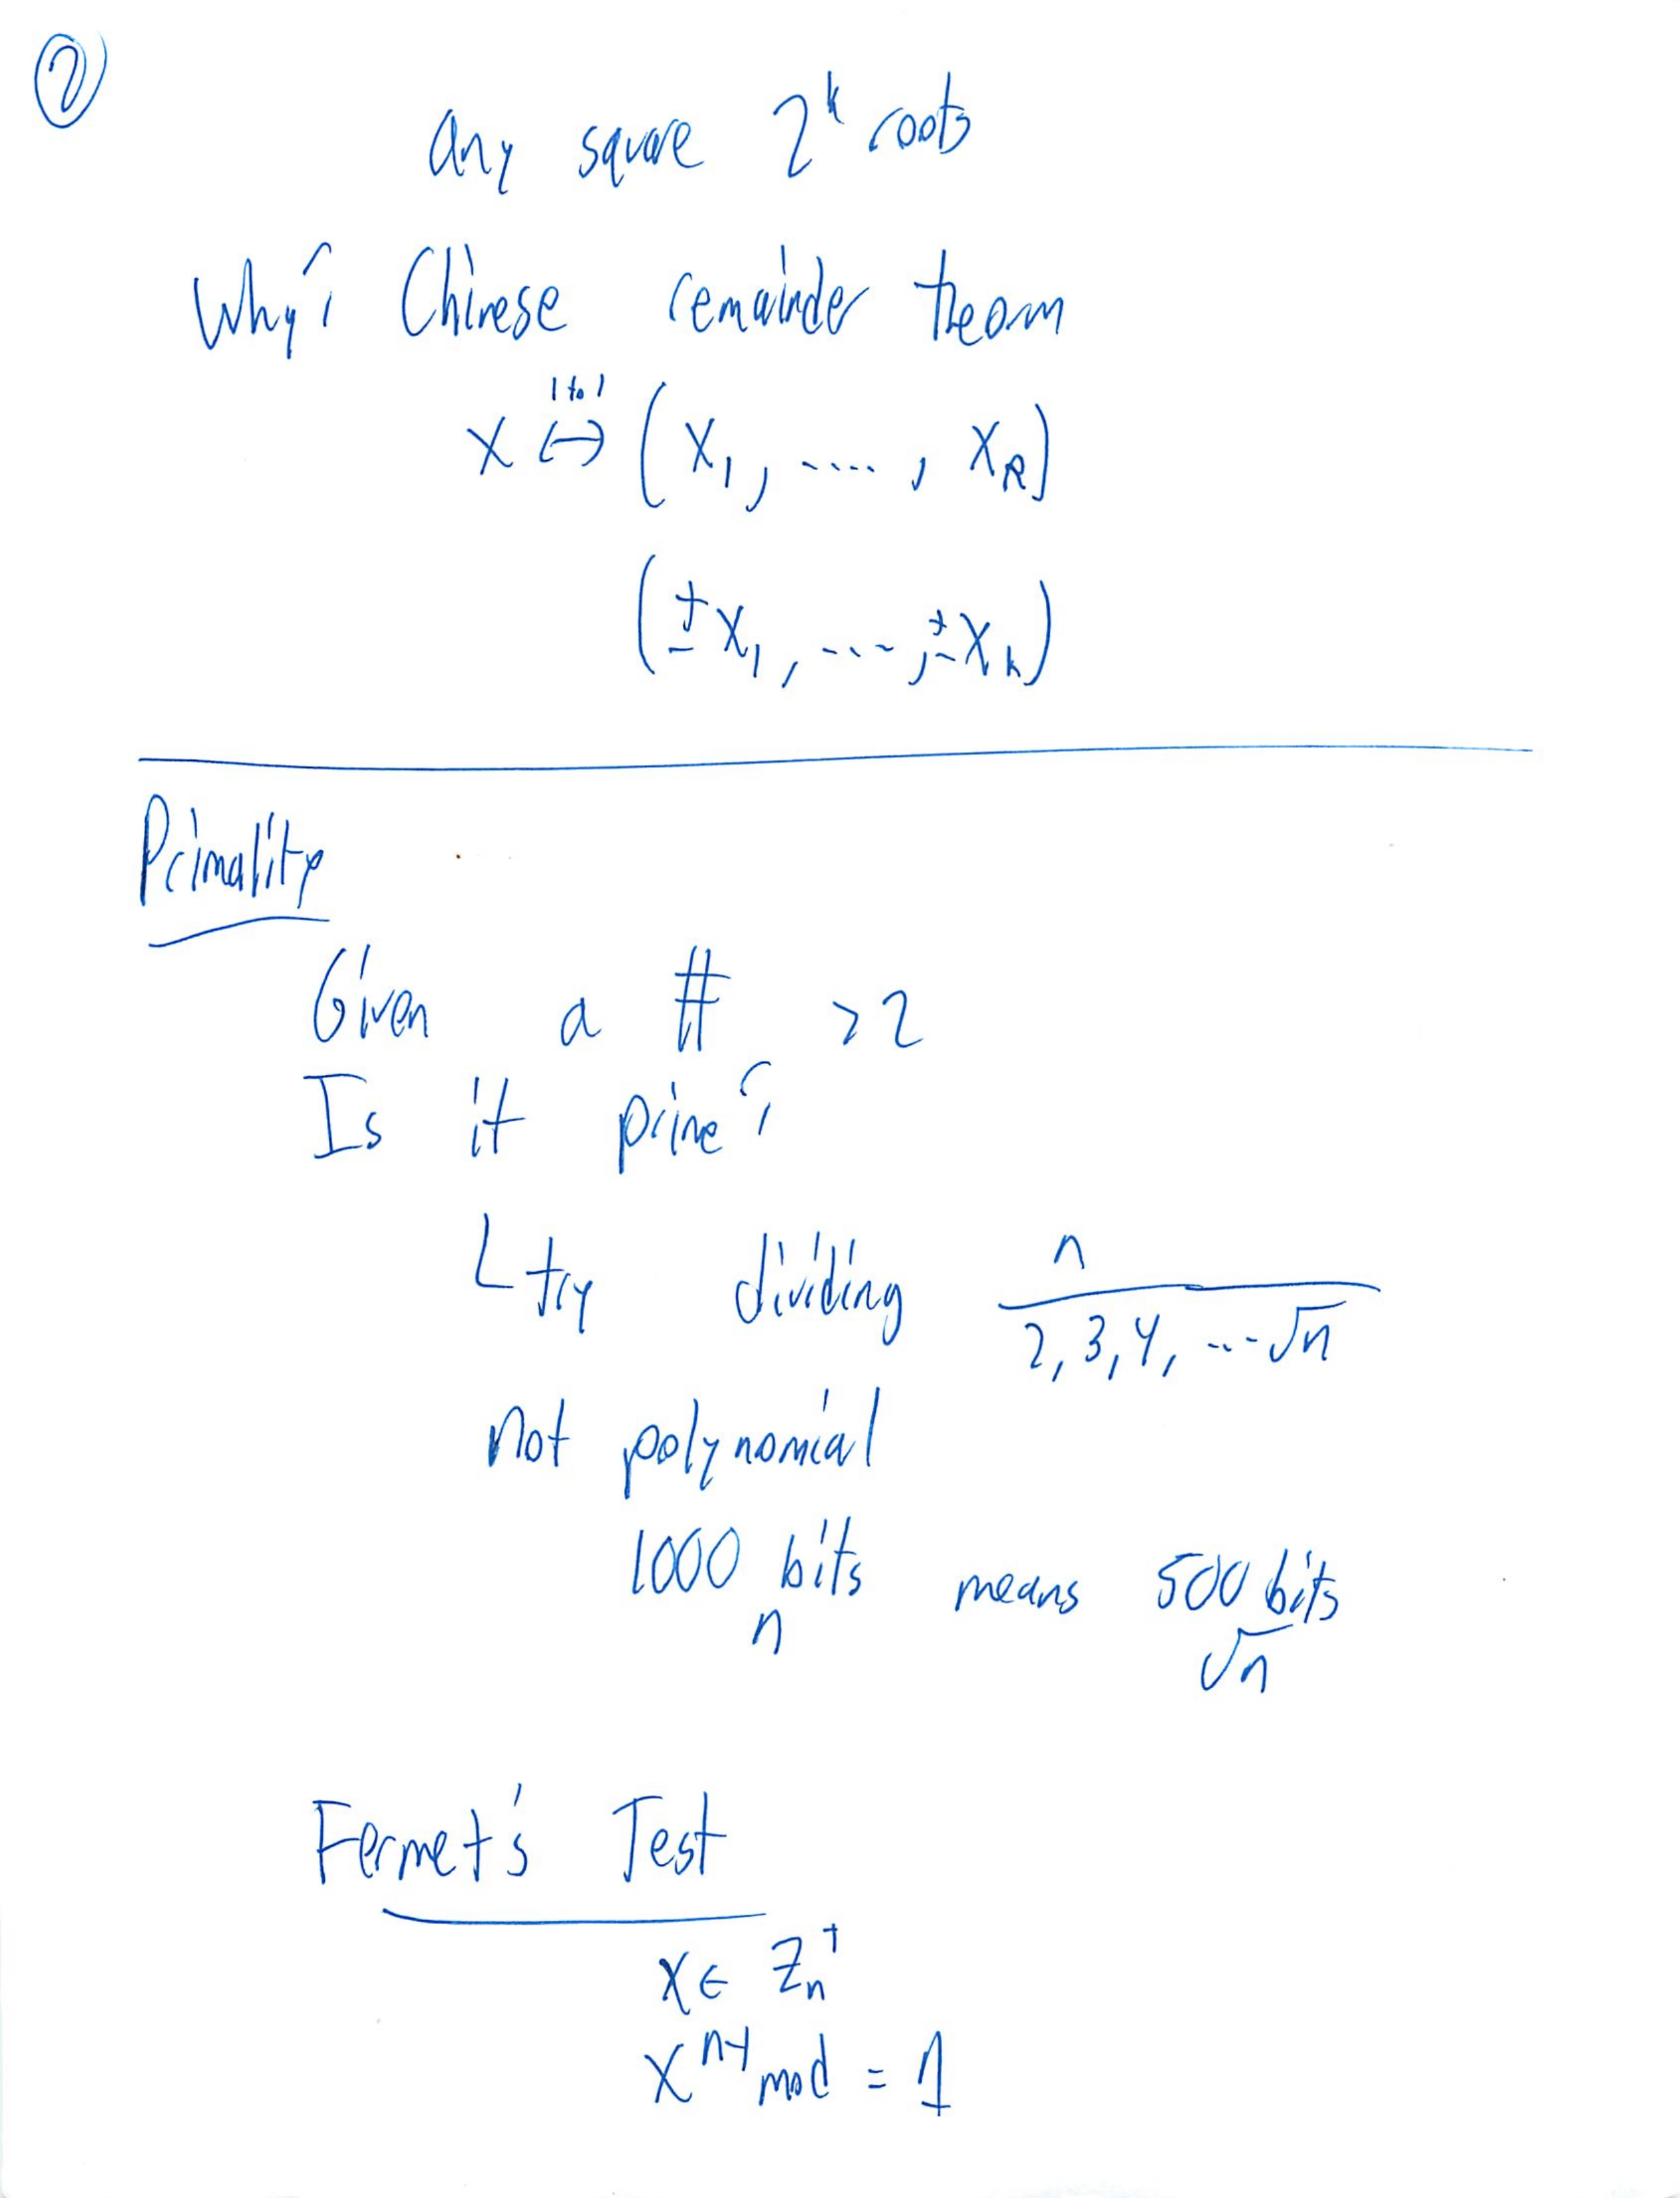 ②
any square 2^k roots
Why? Chinese remainder theorm
1 to 1
x ↔ (x₁, ...., x_k)
(±x₁, ..., ±x_k)
Primality
Given a # >2
Is it prime?
↳ try dividing n / 2,3,4, ...√n
not polynomial
1000 bits means 500 bits
n √n
Fermet's Test
x ∈ Z_n^+
x^{n-1} mod = 1